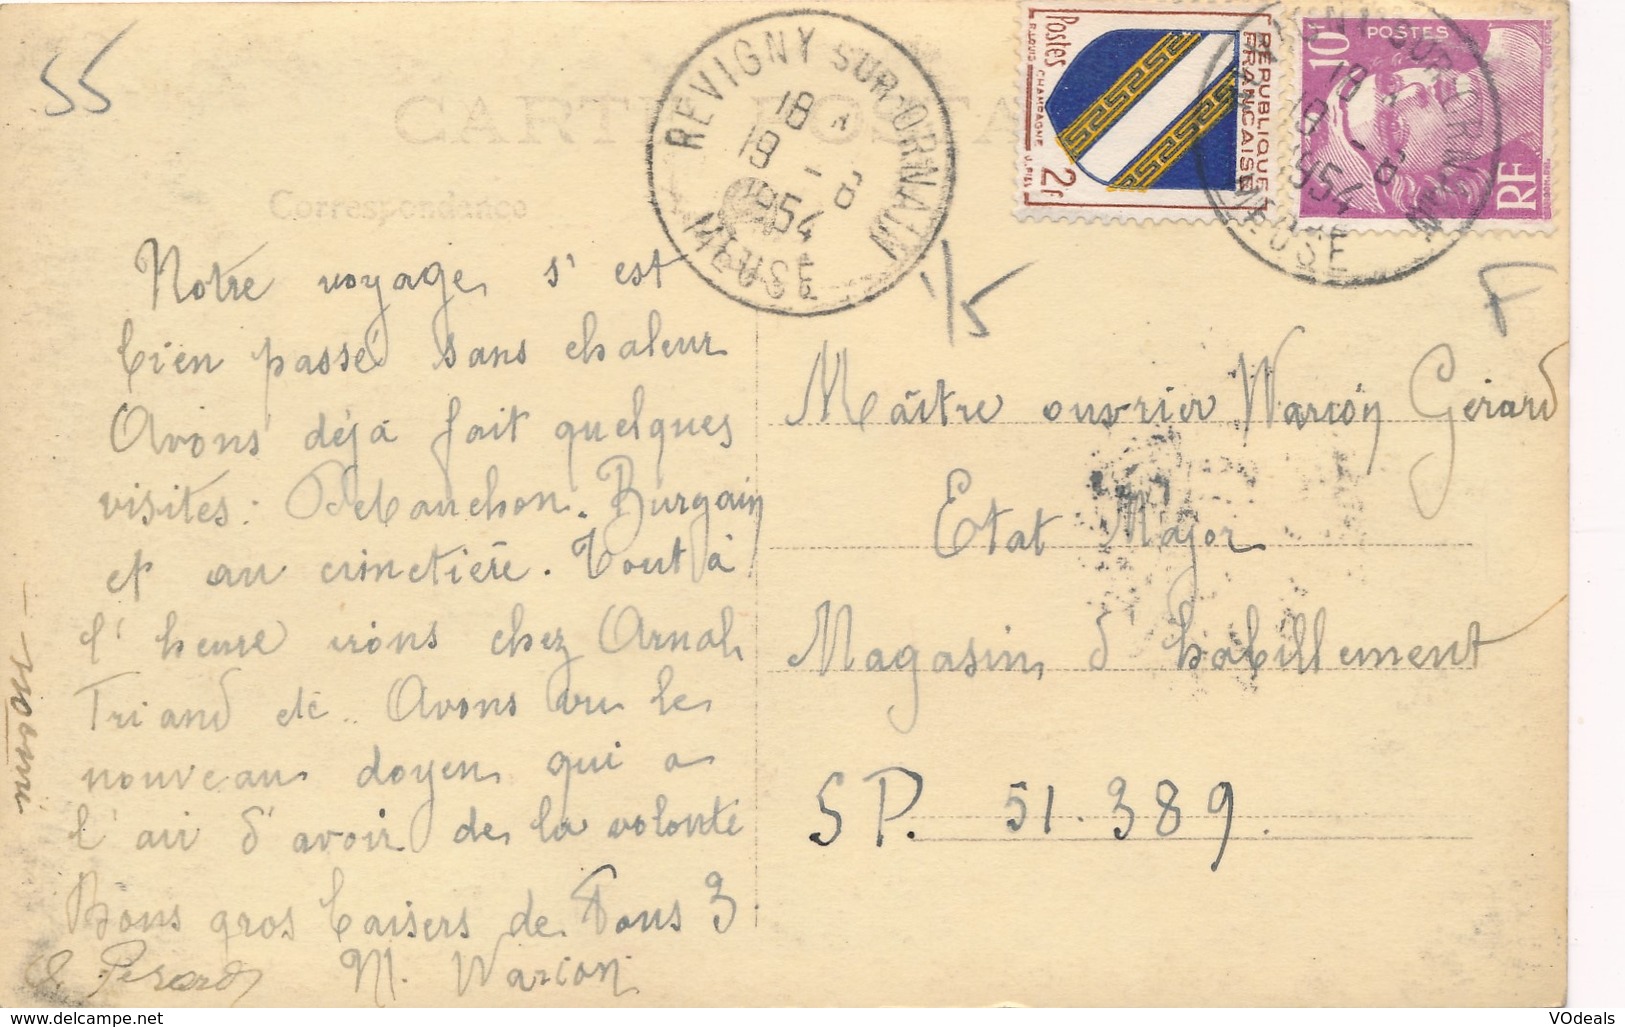 55
CARTE POSTA
Correspondance
REVIGNY SUR-ORNAIN
18 H
18 - 8
1954
MEUSE
Postes
RÉPUBLIQUE
FRANÇAISE
CHAMPAGNE
2F
10F
POSTES
RF
18 H
18 - 8
1954
MEUSE
1/5
F
Notre voyage s'est
bien passé sans chaleur
Avons déjà fait quelques
visites: Debauchon. Burgain
et au cimetière. Tout à
l'heure irons chez Arnol.
Triand etc.. Avons vu le
nouveau doyen qui a
l'air d'avoir de la volonté
Bons gros baisers de Tous 3
Perard M. Warion
- noemi
Maître ouvrier Warion Gérard
Etat Major
Magasin d'habillement
SP. 51.389.
VOdeals
https://www.delcampe.net